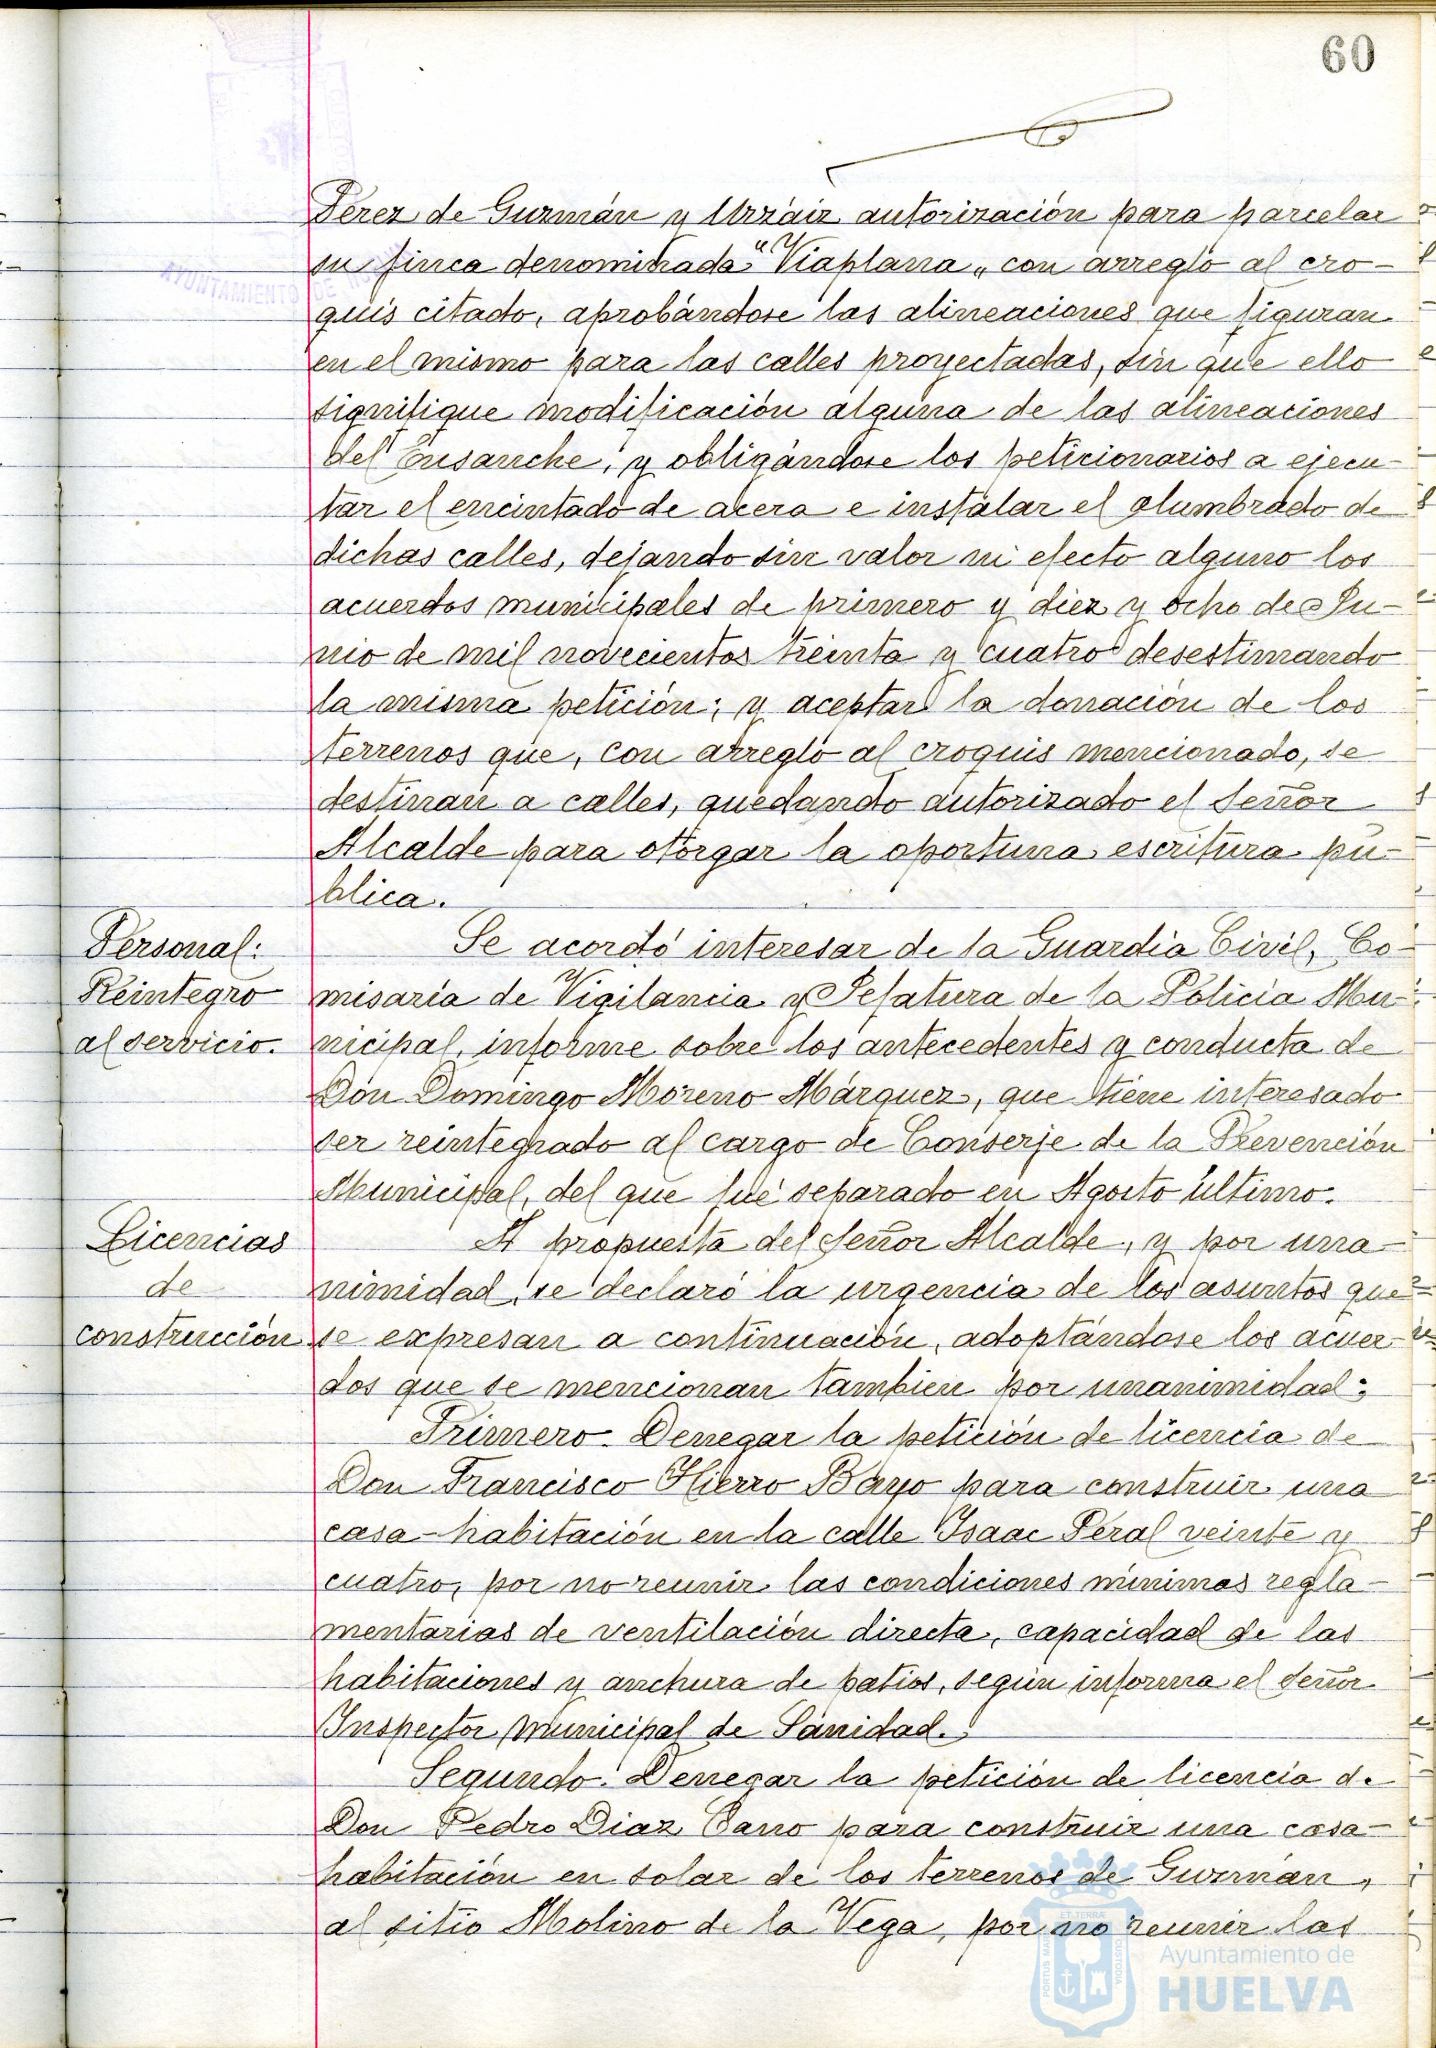 60
Pérez de Guzmán y Urzáiz autorización para parcelar
su finca denominada "Viaplana" con arreglo al cro-
quis citado, aprobándose las alineaciones que figuran
en el mismo para las calles proyectadas, sin que ello
signifique modificación alguna de las alineaciones
del Ensanche, y obligándose los peticionarios a ejecu-
tar el encintado de acera e instalar el alumbrado de
dichas calles, dejando sin valor ni efecto alguno los
acuerdos municipales de primero y diez y ocho de Ju-
nio de mil novecientos treinta y cuatro desestimando
la misma petición; y aceptar la donación de los
terrenos que, con arreglo al croquis mencionado, se
destinan a calles, quedando autorizado el Señor
Alcalde para otorgar la oportuna escritura pú-
blica.
Personal:
Reintegro
al servicio.
Se acordó interesar de la Guardia Civil, Co-
misaría de Vigilancia y Jefatura de la Policía Mu-
nicipal, informe sobre los antecedentes y conducta de
Don Domingo Moreno Márquez, que tiene interesado
ser reintegrado al cargo de Conserje de la Prevención
Municipal, del que fué separado en Agosto último.
Licencias
de
construcción
A propuesta del Señor Alcalde, y por una-
nimidad, se declaró la urgencia de los asuntos que
se expresan a continuación, adoptándose los acuer-
dos que se mencionan tambien por unanimidad:
Primero. Denegar la petición de licencia de
Don Francisco Hierro Bayo para construir una
casa-habitación en la calle Isaac Peral veinte y
cuatro, por no reunir las condiciones mínimas regla-
mentarias de ventilación directa, capacidad de las
habitaciones y anchura de patios, según informa el Señor
Inspector Municipal de Sanidad.
Segundo. Denegar la petición de licencia de
Don Pedro Diaz Cano para construir una casa-
habitación en solar de los terrenos de Guzmán,
al sitio Molino de la Vega, por no reunir las
Ayuntamiento de
HUELVA